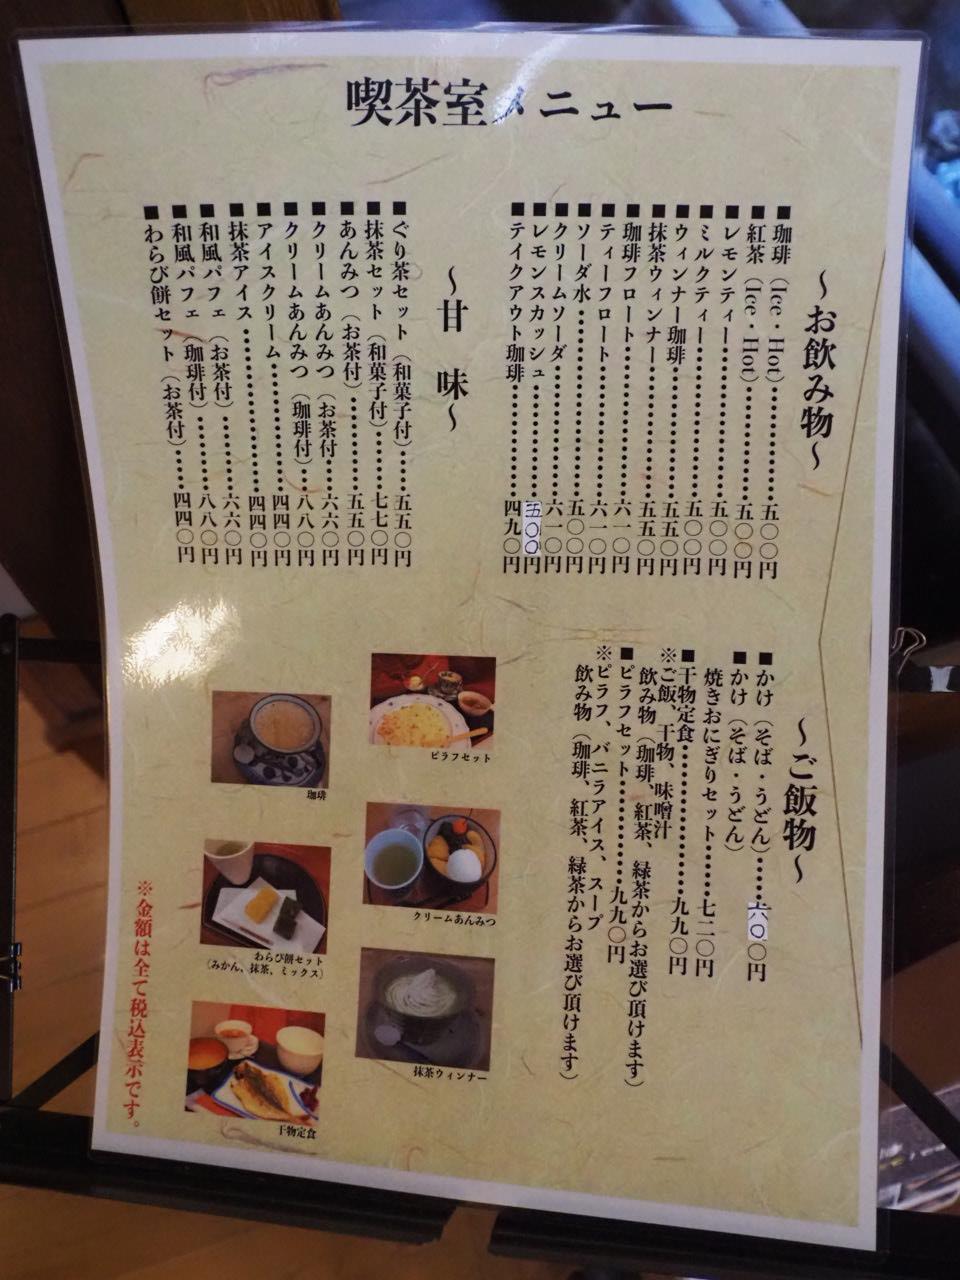 喫茶室メニュー
～お飲み物～
■珈琲（Ice・Hot）…………五〇〇円
■紅茶（Ice・Hot）…………五〇〇円
■レモンティー…………五〇〇円
■ミルクティー…………五〇〇円
■ウィンナー珈琲…………五五〇円
■抹茶ウィンナー…………五五〇円
■珈琲フロート…………六一〇円
■ティーフロート…………六一〇円
■ソーダ水…………五〇〇円
■クリームソーダ…………六一〇円
■レモンスカッシュ…………五〇〇円
■テイクアウト珈琲…………四九〇円
～甘 味～
■ぐり茶セット（和菓子付）……五五〇円
■抹茶セット（和菓子付）……七七〇円
■あんみつ（お茶付）…………五五〇円
■クリームあんみつ（お茶付）……六六〇円
■クリームあんみつ（珈琲付）…八八〇円
■アイスクリーム…………四四〇円
■抹茶アイス…………四四〇円
■和風パフェ（お茶付）……六六〇円
■和風パフェ（珈琲付）……八八〇円
■わらび餅セット（お茶付）……四四〇円
～ご飯物～
■かけ（そば・うどん）……六〇〇円
■かけ（そば・うどん）
焼きおにぎりセット……七二〇円
■干物定食…………九九〇円
※ご飯、干物、味噌汁
飲み物（珈琲、紅茶、緑茶からお選び頂けます）
■ピラフセット…………九九〇円
※ピラフ、バニラアイス、スープ
飲み物（珈琲、紅茶、緑茶からお選び頂けます）
ピラフセット
珈琲
クリームあんみつ
わらび餅セット
（みかん、抹茶、ミックス）
抹茶ウィンナー
干物定食
※金額は全て税込表示です。